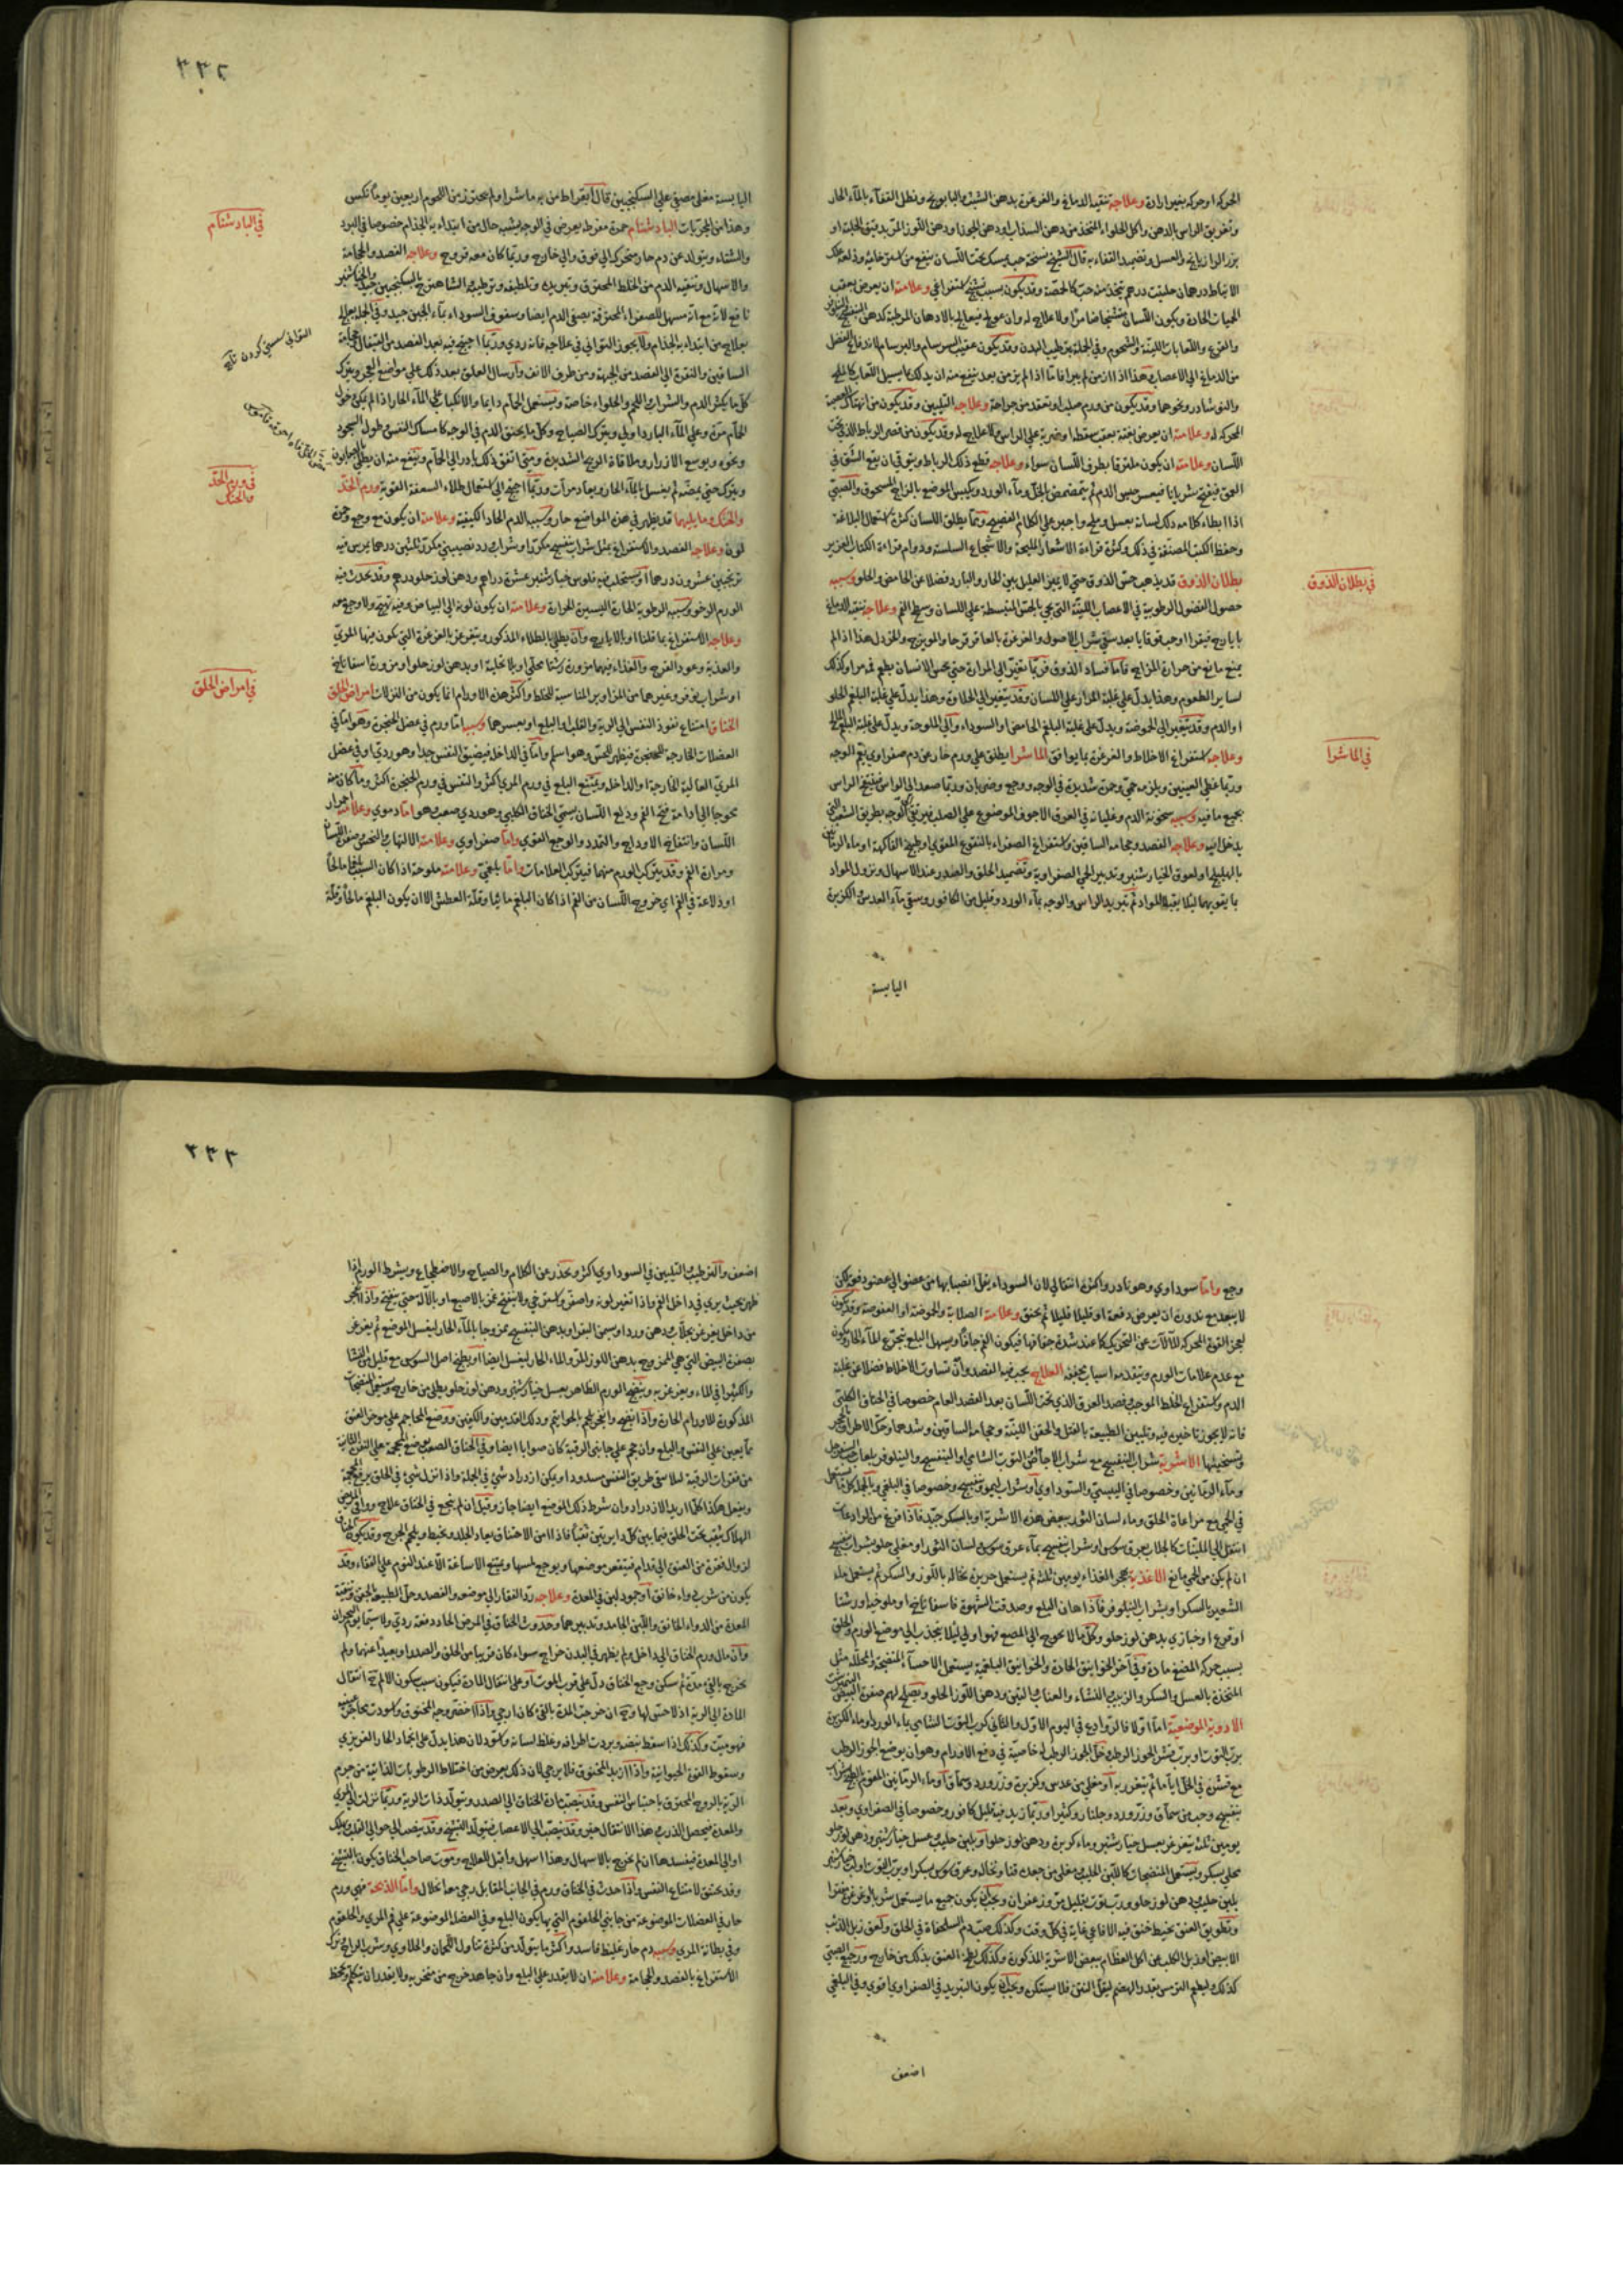 الحركة او حركة بغير ارادة وعلاجه تنقية الدماغ والغرغرة بدهن الشبت والبابونج ونطل القفاء بالماء الحار
وتغريق الراس بالدهن واكل الحلواء المتخذ من دهن السذاب او دهن الجوز او دهن اللوز المر بدقيق الحلبة او
بزر الرازيانج والعسل وتضميد القفاء به قال الشيخ نسخة حب يمسك تحت اللسان ينفع من
الحميات الحادة ويكون اللسان متشنجا ضامرا ولا علاج له وان عولج فيعالج بالادهان المرطبة كدهن البنفسج
والقرع واللعابات اللينة والشحوم وفي الجملة بترطيب البدن وقد يكون عقيب السرسام والبرسام
من الدماغ الى الاعصاب هذا اذا ازمن لم يبرا فاما اذا لم يزمن بعد ينفع منه ان يدلك بما يسيل اللعاب كالملح
والنوشادر ونحوهما وقد يكون من ورم صلب او تعقد من جراحة وعلاجه التليين وقد يكون من انهتاك العصبة
المحركة له وعلامته ان يعرض بغتة بعقب سقطة او ضربة على الراس ولا علاج له وقد يكون من قصر الرباط الذي تحت
اللسان وعلامته ان يكون ملتزقا بطرف اللسان سواء وعلاجه قطع ذلك الرباط ويتوقى ان يقع الشق في
العمق فيفتح شريانا فيعسر حبس الدم ثم يتمضمض بالخل وماء الورد ويكبس الموضع بالزاج المسحوق والصبي
اذا ابطاء كلامه دلك لسانه بعسل وملح واجبر على الكلام الفصيح ومما يطلق اللسان كثرة استعمال البلاغة
وحفظ الكتب المصنفة في ذلك وكثرة قراءة الاشعار المليحة والاشجاع السلسة ودوام قراءة الكتاب العزيز
في بطلان الذوق
بطلان الذوق قد يذهب حس الذوق حتى لا يميز العليل بين الحار والبارد فضلا عن الحامض والحلو وسببه
حصول الفضول الرطوبية في الاعصاب اللينة التي تجي بالحس المنبسطة على اللسان وسطح الفم وعلاجه تنقية الدماغ
بايارج فيقرا او حب قوقايا بعد سقي شراب الاصول والغرغرة بالعاقر قرحا والمويزج والخردل هذا اذا لم
يمنع مانع من حرارة المزاج فاما فساد الذوق فربما يتغير الى المرارة حتى يحس الانسان بطعم ثمر مر او كذلك
لساير الطعوم وهذا يدل على غلبة المرار على اللسان وقد يتغير الى الحلاوة وهذا يدل على غلبة البلغم الحلو
او الدم وقد يتغير الى الحموضة ويدل على غلبة البلغم الحامض او السوداء والى الملوحة ويدل على غلبة البلغم المالح
وعلاجه استفراغ الاخلاط والغرغرة بما يوافق الماشرا يطلق على ورم حار عن دم صفراوي يعم الوجه
في الماشرا
وربما غطى العينين ويلزمه حمى وحمرة شديدة في الوجه ووجع وضربان وربما صعد الى الراس فينتفخ الراس
بجميع ما فيه وسببه سخونة الدم وغليانه في العرق الاجوف الموضوع على الصلب فيرتقي الى الوجه بطريق الشعب التي
يدخل اليه وعلاجه الفصد وحجامة الساقين واستفراغ الصفراء بالنقوع المقوي او طبيخ الفاكهة او ماء الرمانين
بالهليلج او لعوق الخيارشنبر وتدبير الحمى الصفراوية وتضميد الحلق والصدر عند الاسهال ونزول المواد
بما يقويهما ليلا يقبلا المواد ثم تبريد الراس والوجه بماء الورد وقليل من الكافور وسقي ماء العدس الكزبرة
اليابسة
٣٣٢
اليابسة مغلى مصفى على السكنجبين قال ابقراط من به ماشرا ولم يحترز من اللحوم اربعين يوما نكس
وهذا من المجربات البادشنام حمرة مفرطة يعرض في الوجه يشبه حال من ابتداء به الجذام خصوصا في البرد
في البادشنام
والشتاء ويتولد عن دم حار متحركة الى فوق والى خارج وربما كان معه قروح وعلاجه الفصد والحجامة
والاسهال وتنقية الدم من الخلط المحترق وتبريده وتلطيفه وترطيبه
بعلاج من ابتداء به الجذام ولا يجوز التواني في علاجه فانه ردي وربما احتيج فيه بعد الفصد من القيفال حجامة
الساقين والنقرة الى الفصد من الجبهة ومن طرف الانف وارسال العلق بعد ذلك على مواضع
كل ما يكثر الدم والشراب واللحم والحلواء خاصة ويستعمل الحمام دايما والانكباب على الماء الحار اذا لم يمكن دخول
الحمام مرة وعلى الماء البارد اولى ويترك الصياح وكل ما يحتقن الدم في الوجه كامساك النفس وطول السجود
ونحوه ويوسع الازرار وملاقاة الريح الشديدة ومتى اتفق ذلك بادر الى الحمام وينفع منه ان يطلى بالصابون
ويترك حتى يمضه ثم يغسل بالماء الحار ويعاد مرات وربما احتيج الى استعمال طلاء السعفة القوية ورم الخد
في ورم الخد
والحنك
والحنك وما يليهما قد يظهر في هذه المواضع حار وسببه الدم الحاد الكيفية وعلامته ان يكون مع وجع وحمرة
لون وعلاجه الفصد والاستفراغ بمثل شراب بنفسج مكررا وشراب ورد نصيبيني مكررا ثلثين درهما يمرس فيه
ترنجبين عشرون درهما او يستحلب فيه فلوس خيارشنبر عشرة دراهم ودهن لوز حلو درهم وقد يحدث فيه
الورم الرخو وسببه الرطوبة الحارة اليسيرة الحرارة وعلامته ان يكون لونه الى البياض وفيه تهيج ولا وجع معه
وعلاجه الاستفراغ بما قلنا او بالايارج وان يطلى بالطلاء المذكور ويتغرغر بالغرغرة التي يكون فيها المري
والعذبة وعود القرح والغذاء فيهما مزورة رشتا محلى او بلا تحلية او بدهن لوز حلو او مزورة اسفاناخ
او شراب نوفر وغيرهما من المزاوير المناسبة للخلط واكثر هذه الاورام انما يكون من النزلات امراض الحلق
في امراض الحلق
الخناق امتناع نفوذ النفس الى الرية والقلب او البلع او بعسرهما وسببه اما ورم في عضل الحنجرة وهو اما في
العضلات الخارجة للحنجرة فيظهر للحس وهو اسلم واما في الداخلة فيضيق النفس جدا وهو ردي او في عضل
المري العالية الخارجة او الداخلة ويمتنع البلع في ورم المري اكثر والتنفس في ورم الحنجرة اكثر وما كان منه
محوجا الى ادامة فتح الفم ودلع اللسان يسمى الخناق الكلبي وهو ردي صعب وهو اما دموي وعلامته احمرار
اللسان وانتفاخ الاوداج والتمدد والوجع القوي واما صفراوي وعلامته الالتهاب والنخس وصفرة اللسان
ومرارة الفم وقد يتركب الورم منهما فيتركب العلامات واما بلغمي وعلامته ملوحة اذا كان السبب بلغما مالحا
او دلاعة في الفم اي خروج اللسان من الفم اذا كان البلغم مائيا وقلة العطش الا ان يكون البلغم مالحا وقلة
وجع واما سوداوي وهو نادر واكثره انتقالي لان السوداء يقل انصبابها من عضو الى عضو دفعة لكن
لا يبعد مع ندوره ان يعرض دفعة او قليلا قليلا ثم يخنق وعلامته الصلابة والحموضة او العفوصة وقد يكون
لعجز القوة المحركة للآلات عن التحريك كما عند شدة جفافها فيكون الفم جافا ويسهل البلع بتجرع الماء الحار ويكون
مع عدم علامات الورم ويتقدمه اسباب مجففة العلاج يجب فيه الفصد وان تساوت الاخلاط فضلا عن غلبة
الدم واستفراغ الخلط الموجب وفصد العرق الذي تحت اللسان بعد الفصد العام خصوصا في الخناق الكلبي
فانه لا يجوز تاخير فيه وتليين الطبيعة بالفتل والحقن اللينة وحجامة الساقين وشدهما وحك الاطراف
وتسخينها الاشربة شراب البنفسج مع شراب الاجاص او التوت الشامي او البنفسج والنيلوفر
وماء الرمانين وخصوصا في اليبسي والسوداوي او شراب ليمو بنفسج وخصوصا في البلغمي
في الحمى مع مراعاة الحلق وماء لسان الثور ببعض هذه الاشربة او بالسكر جيد فاذا فرغ من الرادعات
انتقل الى الملينات كالجلاب بعرق سوس او شراب بنفسج بماء عرق سوس ولسان الثور او مغلى حلو بشراب بنفسج
ان لم يكن من الحمى مانع الاغذية هجر الغذاء يومين ثلثة ثم يستعمل حريرة نخالة باللوز والسكر ثم يستعمل ماء
الشعير بالسكر او بشراب النيلوفر فاذا هان البلع وصدقت الشهوة فاسفاناخ او ملوخيا او رشتا
او قرع او خبازي بدهن لوز حلو وكل ما لا يحوج الى المضغ فهو اولى ليلا ينجذب الى موضع الورم والحلق
بسبب حركة المضغ مادة وفي آخر الخوانيق الحادة والخوانيق البلغمية يستعمل الاحساء المنضجة والمحللة مثل
المتخذة بالعسل والسكر والزبيب والنشاء والعناب والتين ودهن اللوز الحلو ويصلح لهم صفرة البيض
الادوية الموضعية اما اولا فالروادع في اليوم الاول والثاني كرب التوت الشامي بماء الورد او ماء الكزبرة
برب التوت او برب قشر الجوز الرطب وخل الجوز الرطب له خاصية في دفع الاورام وهو ان يوضع الجوز الرطب
مع قشره في الخل اياما ثم يتغرغر به او مغلى من عدس وكزبرة وزر ورد وسماق او ماء الرمانين
بنفسج وحب من سماق وزر ورد وجلنار وكثيرا وربما زيد فيه قليل كافور وخصوصا في الصفراوي وبعد
يومين ثلثة يتغرغر بعسل خيارشنبر وماء كزبرة ودهن لوز حلو او بلبن حليب وعسل خيارشنبر ودهن لوز حلو
بلبن حليب ودهن لوز حلو ورب توت بقليل مر وزعفران ويجب ان يكون جميع ما يستعمل شربا وغرغرة مفترا
وتطويق العنق بخيط خنق فيه الافاعي غاية في كل وقت وكذلك صب دم السلحفاة في الحلق ولعق زبل الذئب
الابيض او زبل الكلب عن اكل العظام ببعض الاشربة المذكورة وكذلك لطخ العنق بذلك من خارج ورجيع الصبي
كذلك وليطعم الترمس بقدر الهضم ليقل النتن فلا يستنكره ويجب ان يكون التبريد في الصفراوي اقوى وفي البلغمي
اضعف
٣٣٣
اضعف والترطيب والتليين في السوداوي اكثر ويحذر عن الكلام والصياح والاضطجاع ويشرط الورم اذا
ظهر بحيث يرى في داخل الفم واذا تغير لونه واصفر واسترخى ولا ينفتح غمز بالاصبع او بالآلة حتى ينفتح واذا انفجر
من داخل يغرغر بجلاب ودهن ورد او سمن البقر او بدهن البنفسج ممزوجا بالماء الحار ليغسل الموضع ثم يغرغر
بصفرة البيض النيمرشت الممزوج بدهن اللوز المر والماء الحار ليغسل ايضا او بطبيخ اصل السوس مع قليل من النشا
والكثيرا في الماء ويغرغر به وينضج الورم الظاهر بعسل خيارشنبر ودهن لوز حلو يطلى من خارج
المذكورة للاورام الحارة واذا انفتح وانفجر لحم بالخواتيم ودلك القدمين والكفين ووضع المحاجم على موخر العنق
مما يعين على التنفس والبلع وان حجم على جانبي الرقبة كان صوابا ايضا وفي الخناق الصعب يوضع المحجمة على الفقرة الثانية
من فقرات الرقبة ليلا يبقى طريق النفس مسدودا ويكن ازدراد شئ في الجملة واذا انزل شئ في الحلق يرفع المحجمة
ويفعل هكذا كلما اريد الازدراد وان شرط ذلك الموضع ايضا جاز وقيل ان لم ينجع في الخناق علاج ووافى المريض
الهلاك يثقب تحت الحلق فيما بين كل دايرتين ثقبا فاذا امن الاختناق يعاد الجلد ويخيط ويلحم الجرح وقد يكون الخناق
لزوال فقرة من العنق الى قدام فيتقعر موضعها ويوجع لمسها ويمتنع الاساغة الا عند النوم على القفاء وقد
يكون من شرب دواء خانق او جمود لبن في المعدة وعلاجه رد الفقار الى موضعه والفصد وحل الطبيعة بالحقن وتنقية
المعدة من الدواء الخانق واللبن الجامد وتدبيرهما وحدوث الخناق في المرض الحاد دفعة ردي ولا سيما يوم البحران
وان مال ورم الخناق الى داخل ولم يظهر في البدن خراج سواء كان قريبا من الحلق والصدر او بعيدا عنهما ولم
يخرج بالقئ مدة ثم سكن وجع الخناق دل على قرب الموت او على انتقال المادة فيكون سبب سكون الالم ح انتقال
المادة الى الرية اذ لا حس لها وح ان خرجت المدة بالقئ كان ارجى واذا اخضر وجه المخنوق واسودت محاجر عينيه
فهو ميت وكذلك اذا سقط نبضه وبردت اطرافه وغلظ لسانه واسود لان هذا يدل على انخماد الحار الغريزي
وسقوط القوة الحيوانية واذا ازبد المخنوق فلا يرجى لان ذلك يعرض من اختلاط الرطوبات الذائبة من جرم
الرية بالروح المحترق باحتباس النفس وقد ينصب مادة الخناق الى الصدر ويتولد ذات الرية وربما نزلت الى المري
والمعدة فيحصل الذرب هذا الانتقال خير وقد ينصب الى الاعصاب فيتولد التشنج وقد ينصب الى حوالى القلب فيهلك
او الى المعدة فيفسدها ان لم يخرج بالاسهال وهذا اسهل واقبل للعلاج وموت صاحب الخناق يكون بالتشنج
وقد يختنق لامتناع النفس واذا حدث في الخناق ورم في الجانب المقابل رجي معه انحلال واما الذبحة فهي ورم
حار في العضلات الموضوعة من جانبي الحلقوم التي بها يكون البلع وفي العضل الموضوعة على فم المري والحلقوم
وفي بطانة المري وسببه دم حار غليظ فاسد واكثر ما يتولد من كثرة تناول اللحمان والحلاوي وشرب المراح وترك
الاستفراغ بالفصد والحجامة وعلامته ان لا يقدر على البلع وان جاهد خرج من منخريه ولا يقدر ان يتكلم